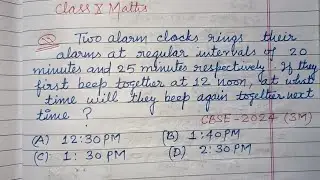 Class X Maths
Q Two alarm clocks rings their
alarms at regular intervals of 20
minutes and 25 minutes respectively. If they
first beep together at 12 noon, at what
time will they beep again together next
time ?
CBSE-2024 (3M)
(A) 12:30 PM (B) 1:40 PM
(C) 1:30 PM (D) 2:30 PM